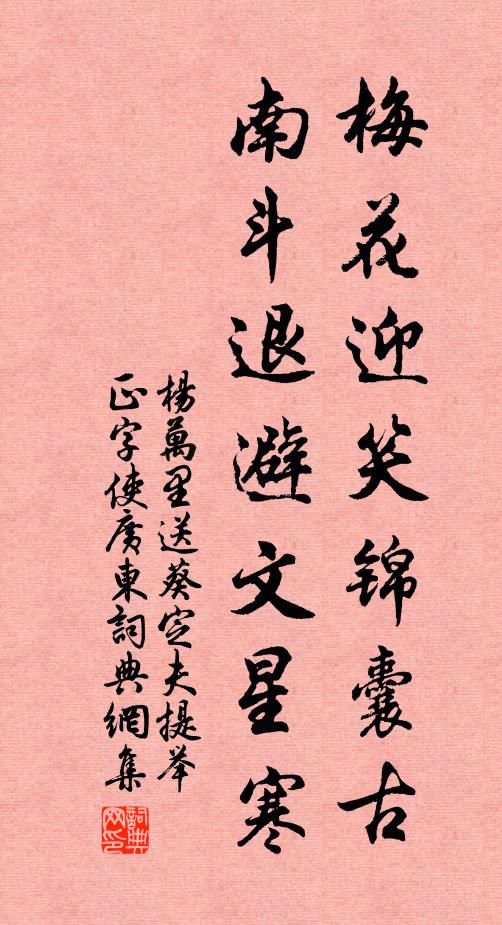 梅花迎笑锦囊古
南斗退避文星寒
楊萬里送葵定夫提举
正字使廣東詞典網集
詞典网印